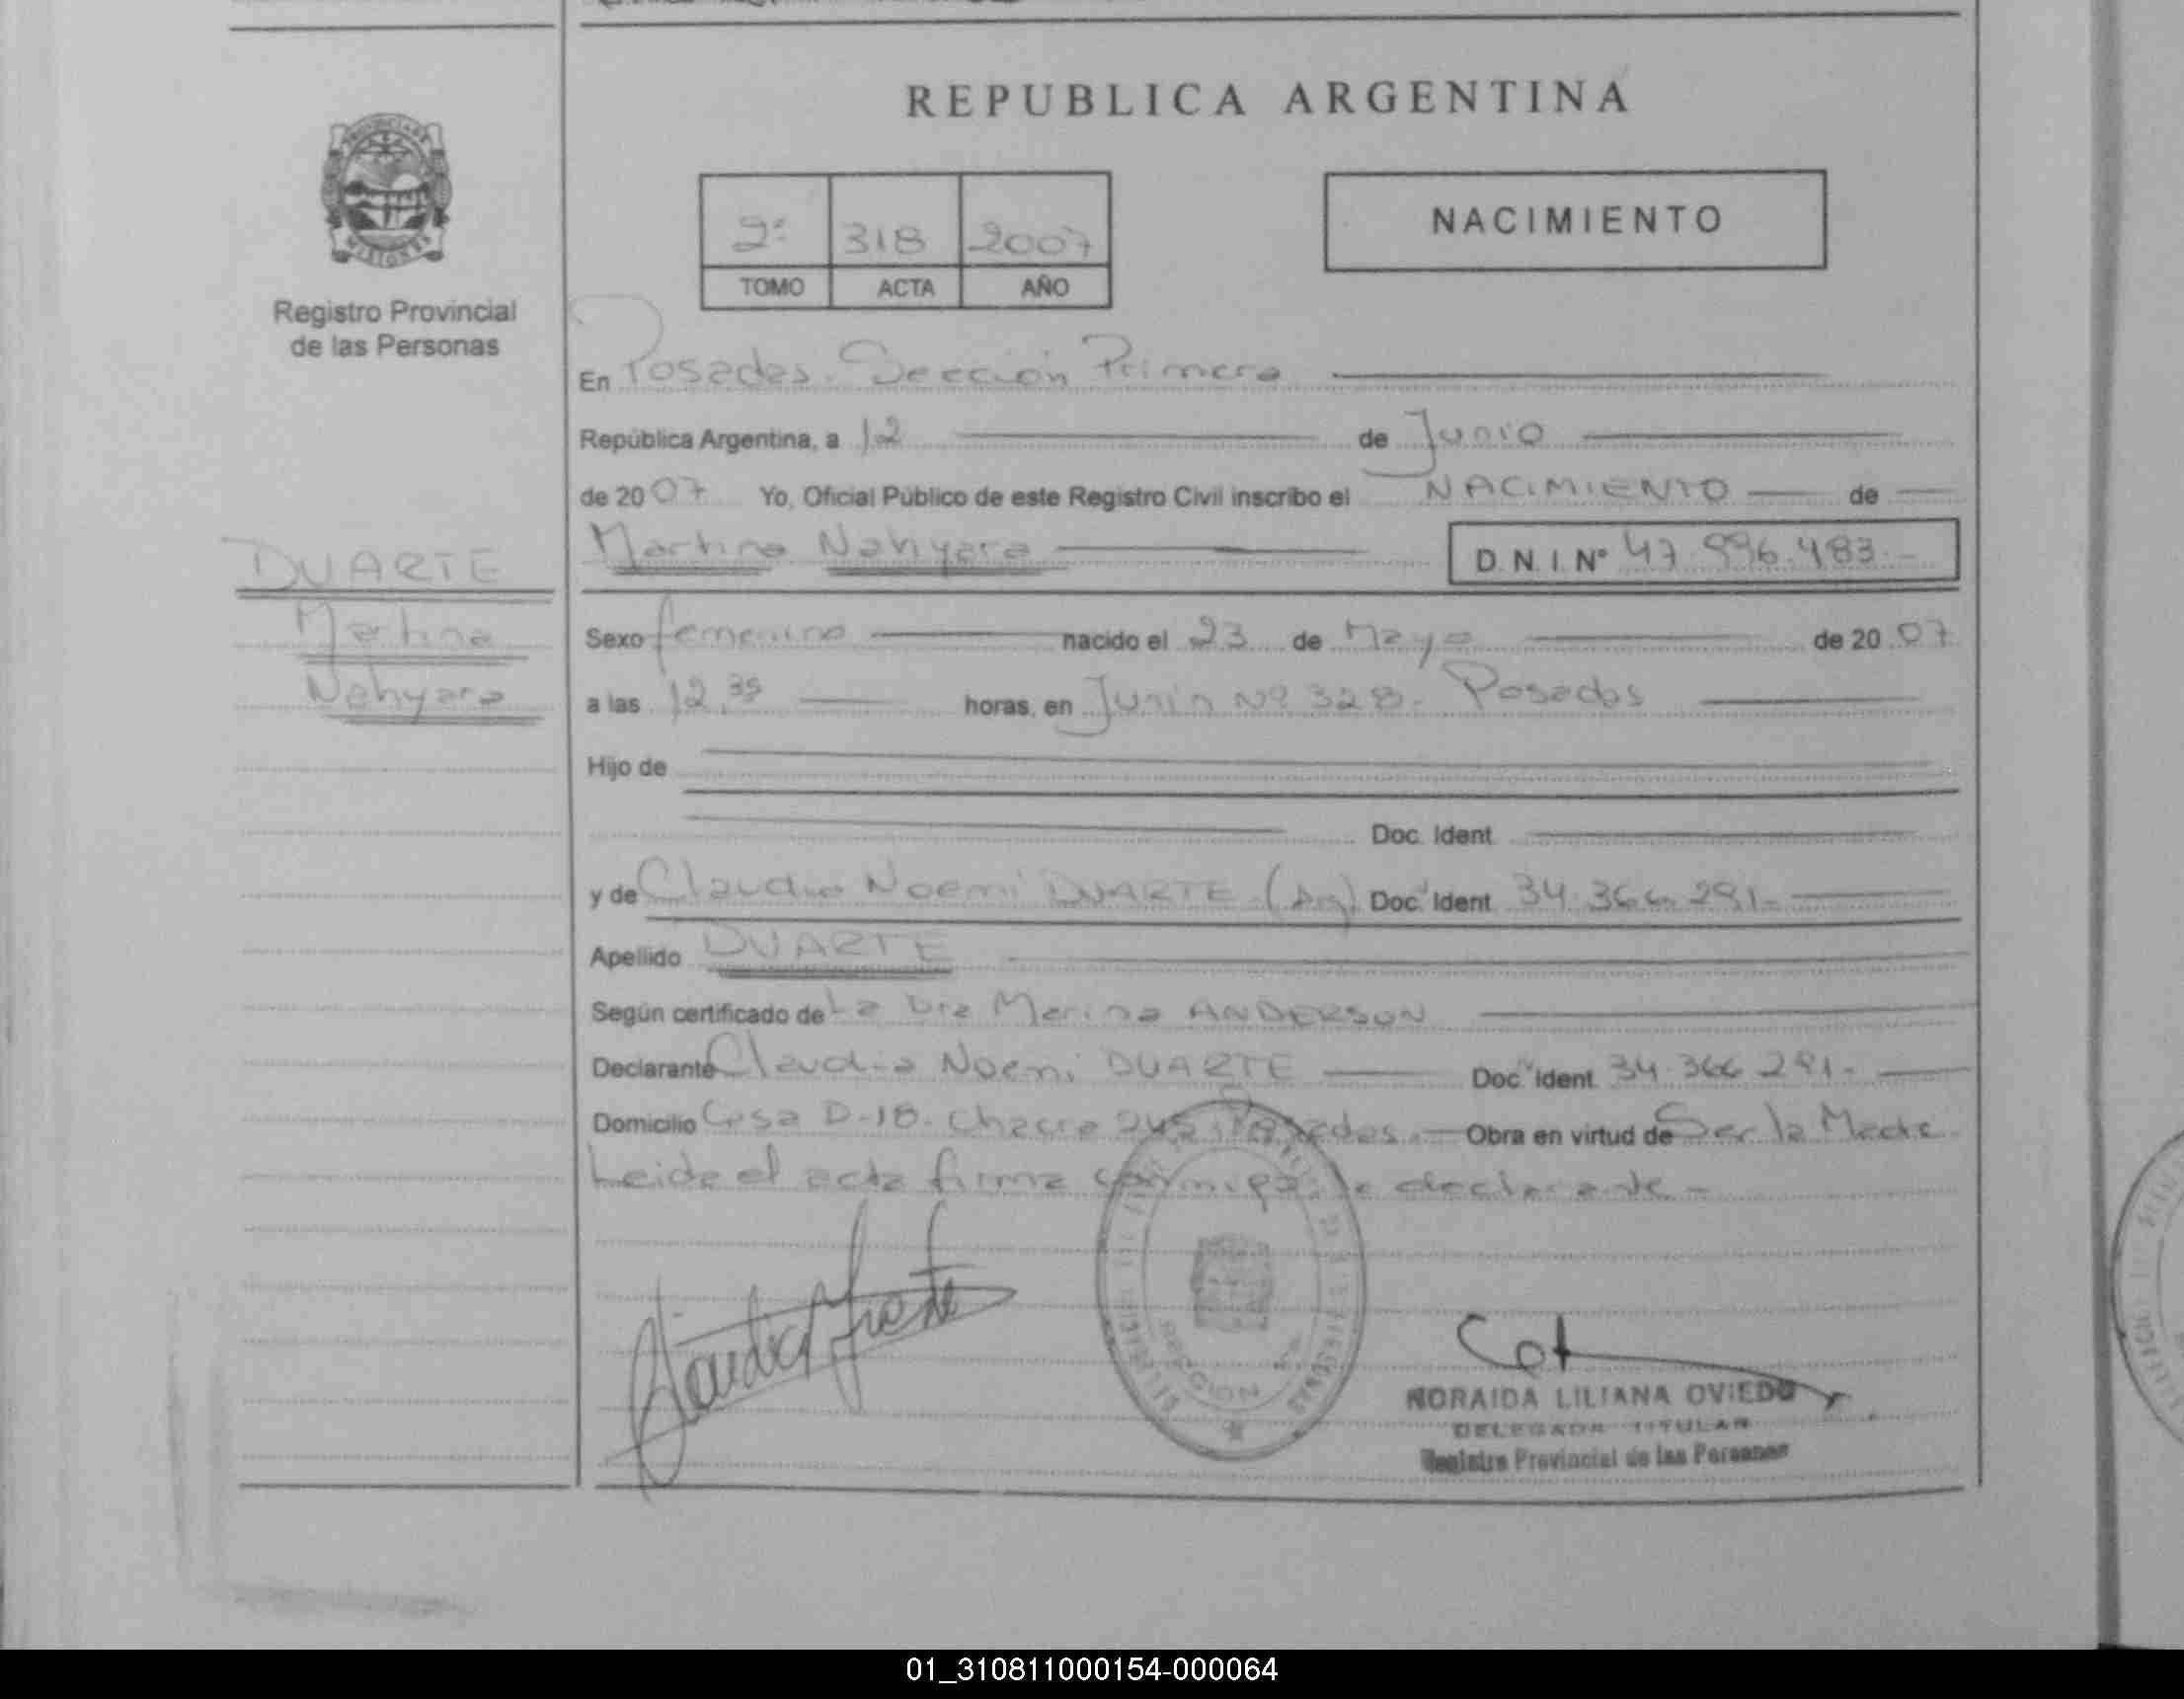 REPUBLICA ARGENTINA
PROVINCIA DE
MISIONES
Registro Provincial
de las Personas
2º 318 2007
TOMO ACTA AÑO
NACIMIENTO
En Posadas. Sección Primera
República Argentina, a 12 de Junio
de 2007 Yo, Oficial Público de este Registro Civil inscribo el NACIMIENTO de
Martina Nahyara D.N.I. Nº 47.996.483.-
DUARTE
Martina
Nahyara
Sexo femenino nacido el 23 de Mayo de 2007
a las 12,35 horas, en Junin Nº 328. Posadas
Hijo de
Doc. Ident.
y de Claudia Noemi DUARTE (Arg). Doc. Ident. 34.366.291.-
Apellido DUARTE
Según certificado de La Dra Marina ANDERSON
Declarante Claudia Noemi DUARTE Doc. Ident. 34.366.291.-
Domicilio Casa D-18. Chacra 245 Posadas.- Obra en virtud de Ser la Madre
Leida el acta firma conmigo la declarante.-
Claudia Duarte
SECCION
NORAIDA LILIANA OVIEDO
DELEGADA TITULAR
Registro Provincial de las Personas
01_310811000154-000064